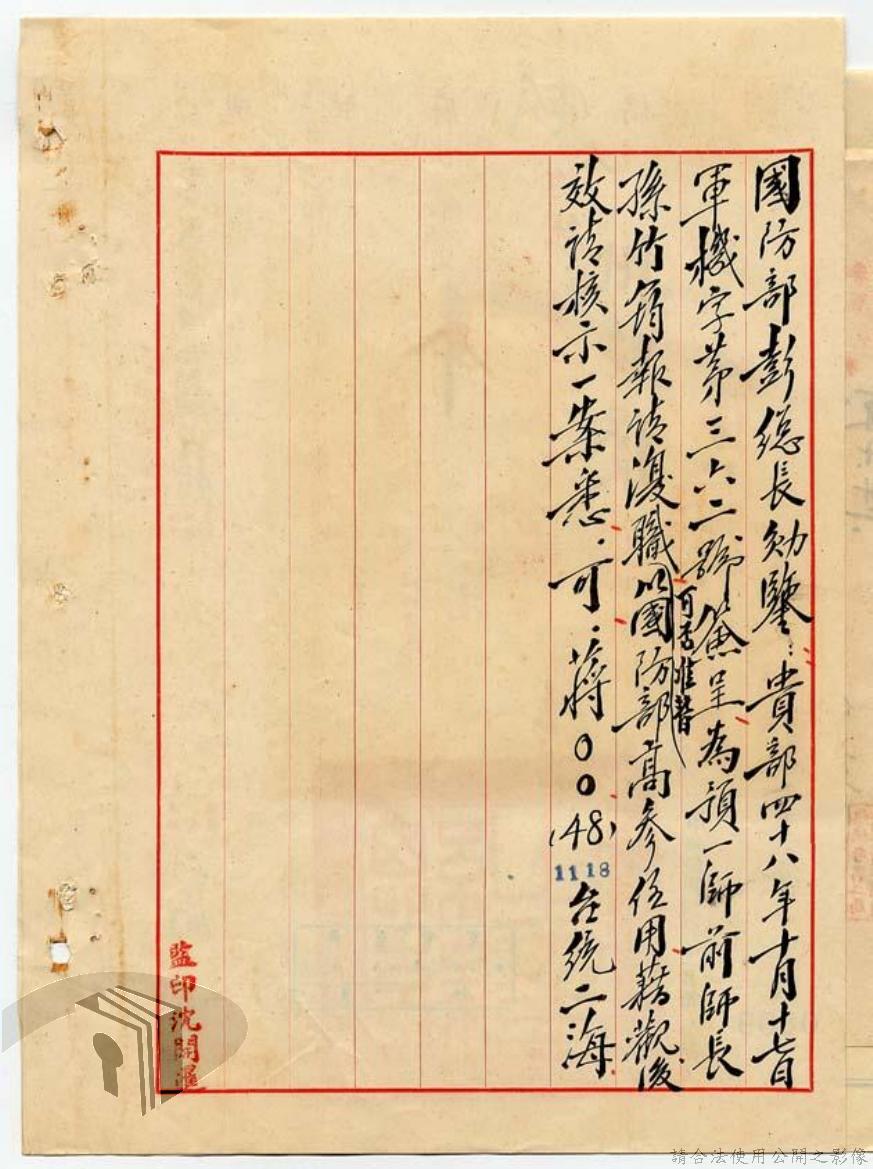 國防部彭總長勛鑒：貴部四十八年十月十七日
軍機字第三六二號簽呈為預一師前師長
孫竹筠報請復職可否准暫以國防部高參任用藉觀後
效請核示一案悉．可．蔣○○(48)1118台統二海
監印沈開運
請合法使用公開之影像